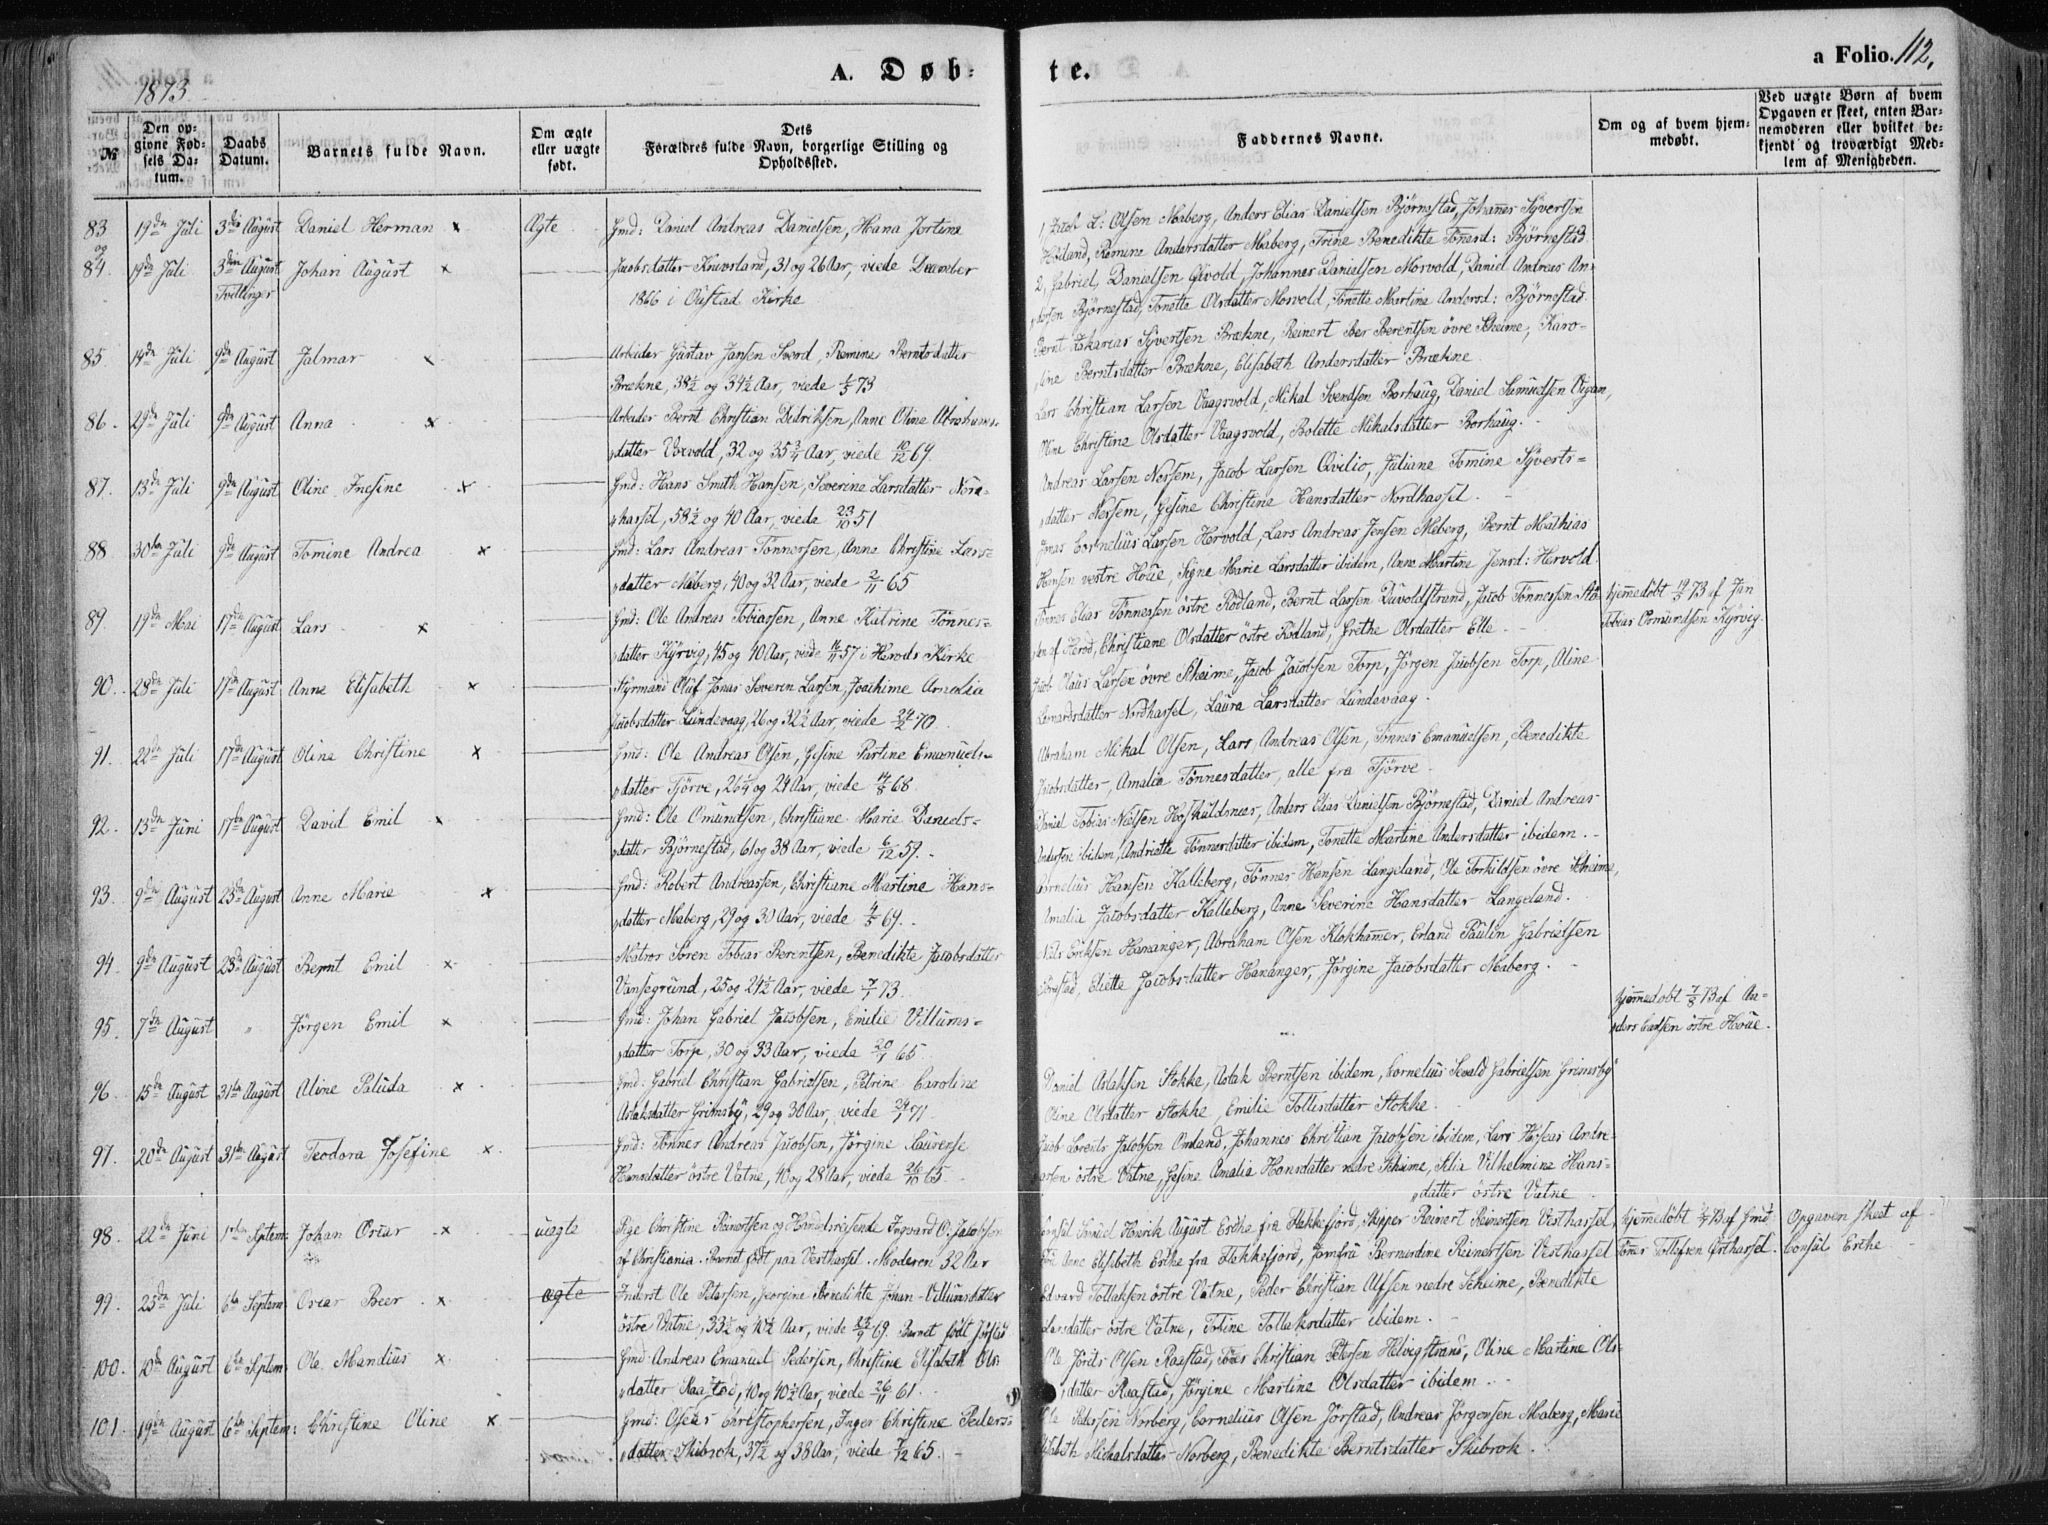 A. Døb-
te.
a Folio. 112.
1873
№
Den opgivne Fødsels Datum.
Daabs Datum.
Barnets fulde Navn.
Om ægte eller uægte født.
Dets Forældres fulde Navn, borgerlige Stilling og Opholdssted.
Faddernes Navne.
Om og af hvem hjemmedøbt.
Ved uægte Børn af hvem Opgaven er skeet, enten Barnemoderen eller hvilket bekjendt og troværdigt Medlem af Menigheden.
83 19de Juli 3die August Daniel Herman x Ægte Gmd: Daniel Andreas Danielsen, Hana Jortine
og
84. 19de Juli 3die August Johan August x Jacobsdatter Knivsland, 31 og 26 Aar, viede December
Tvillinger 1866 i Oustad Kirke
1, Jacob L: Olsen Maberg, Anders Elias Danielsen Björnestad, Johannes Syvertsen
Hödland, Remine Andersdatter Maberg, Trine Benedikte Tönesd: Björnestad.
2, Gabriel Danielsen Qivold, Johannes Danielsen Morvold, Daniel Andreas An-
dersen Björnestad, Tonette Olsdatter Morvold, Tonette Martine Andersd: Björnestad.
85 14de Juli 9de August Jalmar x Arbeider Gustav Jansen Svord, Remine Berntsdatter
Brækne, 38½ og 34½ Aar, viede 73
Bernt Zakarias Syvertsen Brækne, Reinert Ber Berentsen övre Skeime, Karo-
line Berntsdatter Brækne, Elisabeth Andersdatter Brækne.
86. 29de Juli 9de August Anna x Arbeider Bernt Christian Dedriksen, Anne Olina Abrahams-
datter Vorvold, 32 og 35¾ Aar, viede 10/12 69.
Lars Christian Larsen Vaagsvold, Mikal Svendsen Borhaug, Daniel Samuelsen Vigan,
Oline Christine Olsdatter Vaagsvold, Bolette Mikalsdatter Borhaug.
87. 13de Juli 9de August Oline Inesine x Gmd: Hans Smith Hansen, Severine Larsdatter Nord-
hassel, 58½ og 40 Aar, viede 23/10 51
Andreas Larsen Nessem, Jacob Larsen Qvilio, Juliane Tomine Syverts-
datter Nersem, Gesine Christine Hansdatter Nordhassel.
88 30te Juli 9de August Tomine Andrea x Gmd: Lars Andreas Tönnessen, Anne Christine Lars-
datter Maberg, 40 og 32 Aar, viede 2/11 65
Jonas Cornelius Larsen Hervold, Lars Andreas Jensen Meberg, Bernt Mathias
Hansen vestre Houe, Signe Marie Larsdatter ibidem, Anne Martine Jensd: Hervold.
89. 19de Mai 17de August Lars x Gmd: Ole Andreas Tobiassen, Anne Katrine Tönnes-
datter Kjörvig, 45 og 40 Aar, viede 57 i Herods Kirke
Tönnes Elias Tönnessen östre Rödland, Bernt Larsen Duvoldstrand, Jacob Tönnessen Stö-
len af Herod, Christiane Olsdatter östre Rödland, Grethe Olsdatter Elle.
hjemmedöbt 19/5 73 af Jan
Tobias Osmundsen Kjörvig.
90. 28de Juli 17de August Anne Elisabeth x Styrmand Oluf Jonas Severin Larsen, Joachime Arnolia
Jacobsdatter Lundevaag, 26 og 32½ Aar, viede 24/2 70.
Jacob Olaus Larsen övre Skeime, Jacob Jacobsen Torp, Jörgen Jacobsen Torp, Aline
Leonardsdatter Nordhassel, Laura Larsdatter Lundevaag.
91. 22de Juli 17de August Olina Christine x Gmd: Ole Andreas Olsen, Gesine Partine Emanuels-
datter Tjörve, 26¼ og 24 Aar, viede 14/8 68
Abraham Mikal Olsen, Lars Andreas Olsen, Tönnes Emanuelsen, Benedikte
Jacobsdatter, Amalia Tönnesdatter, alle fra Tjörve.
92. 13de Juni 17de August David Emil x Gmd: Ole Omundsen, Christiane Marie Daniels-
datter Björnestad, 61 og 38 Aar, viede 6/12 59.
Daniel Tobias Nielsen Hoskuldsnæs, Anders Elias Danielsen Björnestad, Daniel Andreas
Andersen ibidem, Andriette Tönnesdatter ibidem, Tonette Martine Andersdatter ibidem.
93. 9de August 23de August Anne Marie x Gmd: Robert Andreassen, Christiane Martine Hans-
datter Maberg, 29 og 30 Aar, viede 4/5 69.
Cornelius Hansen Kalleberg, Tönnes Hansen Langeland, Ole Torkildsen övre Skeime,
Amalia Jacobsdatter Kalleberg, Anne Severine Hansdatter Langeland.
94. 9de August 23de August Bernt Emil x Matros Sören Tobias Berentsen, Benedikte Jacobsdatter
Vansegrund, 25 og 24½ Aar, viede 7/1 73
Nils Eriksen Hananger, Abraham Olsen Klokhammer, Erland Paulin Gabrielsen
Jörestad, Eliette Jacobsdatter Hananger, Jörgine Jacobsdatter Maberg.
95. 7de August " Jörgen Emil x Gmd: Johan Gabriel Jacobsen, Emilie Villums-
datter Torp, 30 og 33 Aar, viede 20/1 65.
hjemmedöbt 7/8 73 af An-
ders Carlsen östre Houe.
96. 15de August 31te August Aline Paluda x Gmd: Gabriel Christian Gabrielsen, Petrine Caroline
Aslaksdatter Grimsby, 29 og 30 Aar, viede 29/1 71
Daniel Aslaksen Stokke, Aslak Berntsen ibidem, Cornelius Sevald Gabrielsen Grimsby
Oline Olsdatter Stokke, Emilie Tollisdatter Stokke.
97. 20de August 31te August Teodora Josefine x Gmd: Tönnes Andreas Jacobsen, Jörgine Laurense
Hansdatter östre Vatne, 40 og 28 Aar, viede 26/10 65.
Jacob Lorents Jacobsen Omland, Johannes Christian Jacobsen ibidem, Lars Hoseas Andre-
assen östre Vatne, Gesine Amalia Hansdatter nedre Skeime, Silia Vilhelmine Hans-
datter östre Vatne
98. 22de Juni 1ste Septem: Johan Oscar x uægte Pige Christine Reinertsen og Handelsreisende Ingvard O. Jacobsen
af Christiania. Barnet född paa Vesthassel. Moderen 32 Aar
Consul Daniel Henrik August Eschе fra Flekkefjord, Skipper Reinert Reinertsen Vesthassel,
Frü Anne Elisabeth Esche fra Flekkefjord, Jomfrü Bernardine Reinertsen Vesthassel
hjemmedöbt 73 af Gmd
Tönnes Tollefsen Östhassel.
Opgaven skeet af
Consul Esche
99. 25de Juli 6te Septem: Oscar Beer x ægte Inderst Ole Petersen, Georgine Benedikte Johan-Villumsdatter
östre Vatne, 33½ og 40½ Aar, viede 69. Barnet födt Jörstad
Edvard Tollaksen östre Vatne, Peder Christian Alfsen nedre Skeime, Benedikte
Larsdatter östre Vatne, Trine Tollaksdatter ibidem.
100. 10de August 6te Septem: Ole Mandius x Gmd: Andreas Emanuel Pedersen, Christine Elisabeth Ols-
datter Raastad, 40 og 40½ Aar, viede 26/11 61.
Ole Jörits Olsen Raastad, Tönes Christian Petersen Helvigstrand, Oline Martine Ols-
datter Raastad, Jörgine Martine Olsdatter ibidem.
101. 19de August 6te Septem: Christine Oline x Gmd: Oseas Christophersen, Inger Christine Peders-
datter Skibrok, 37½ og 38 Aar, viede 7/12 65.
Ole Pedersen Norberg, Cornelius Olsen Jörstad, Andreas Jörgensen Maberg, Marie
Elisabeth Mickalsdatter Norberg, Benedikte Berntsdatter Skibrok.